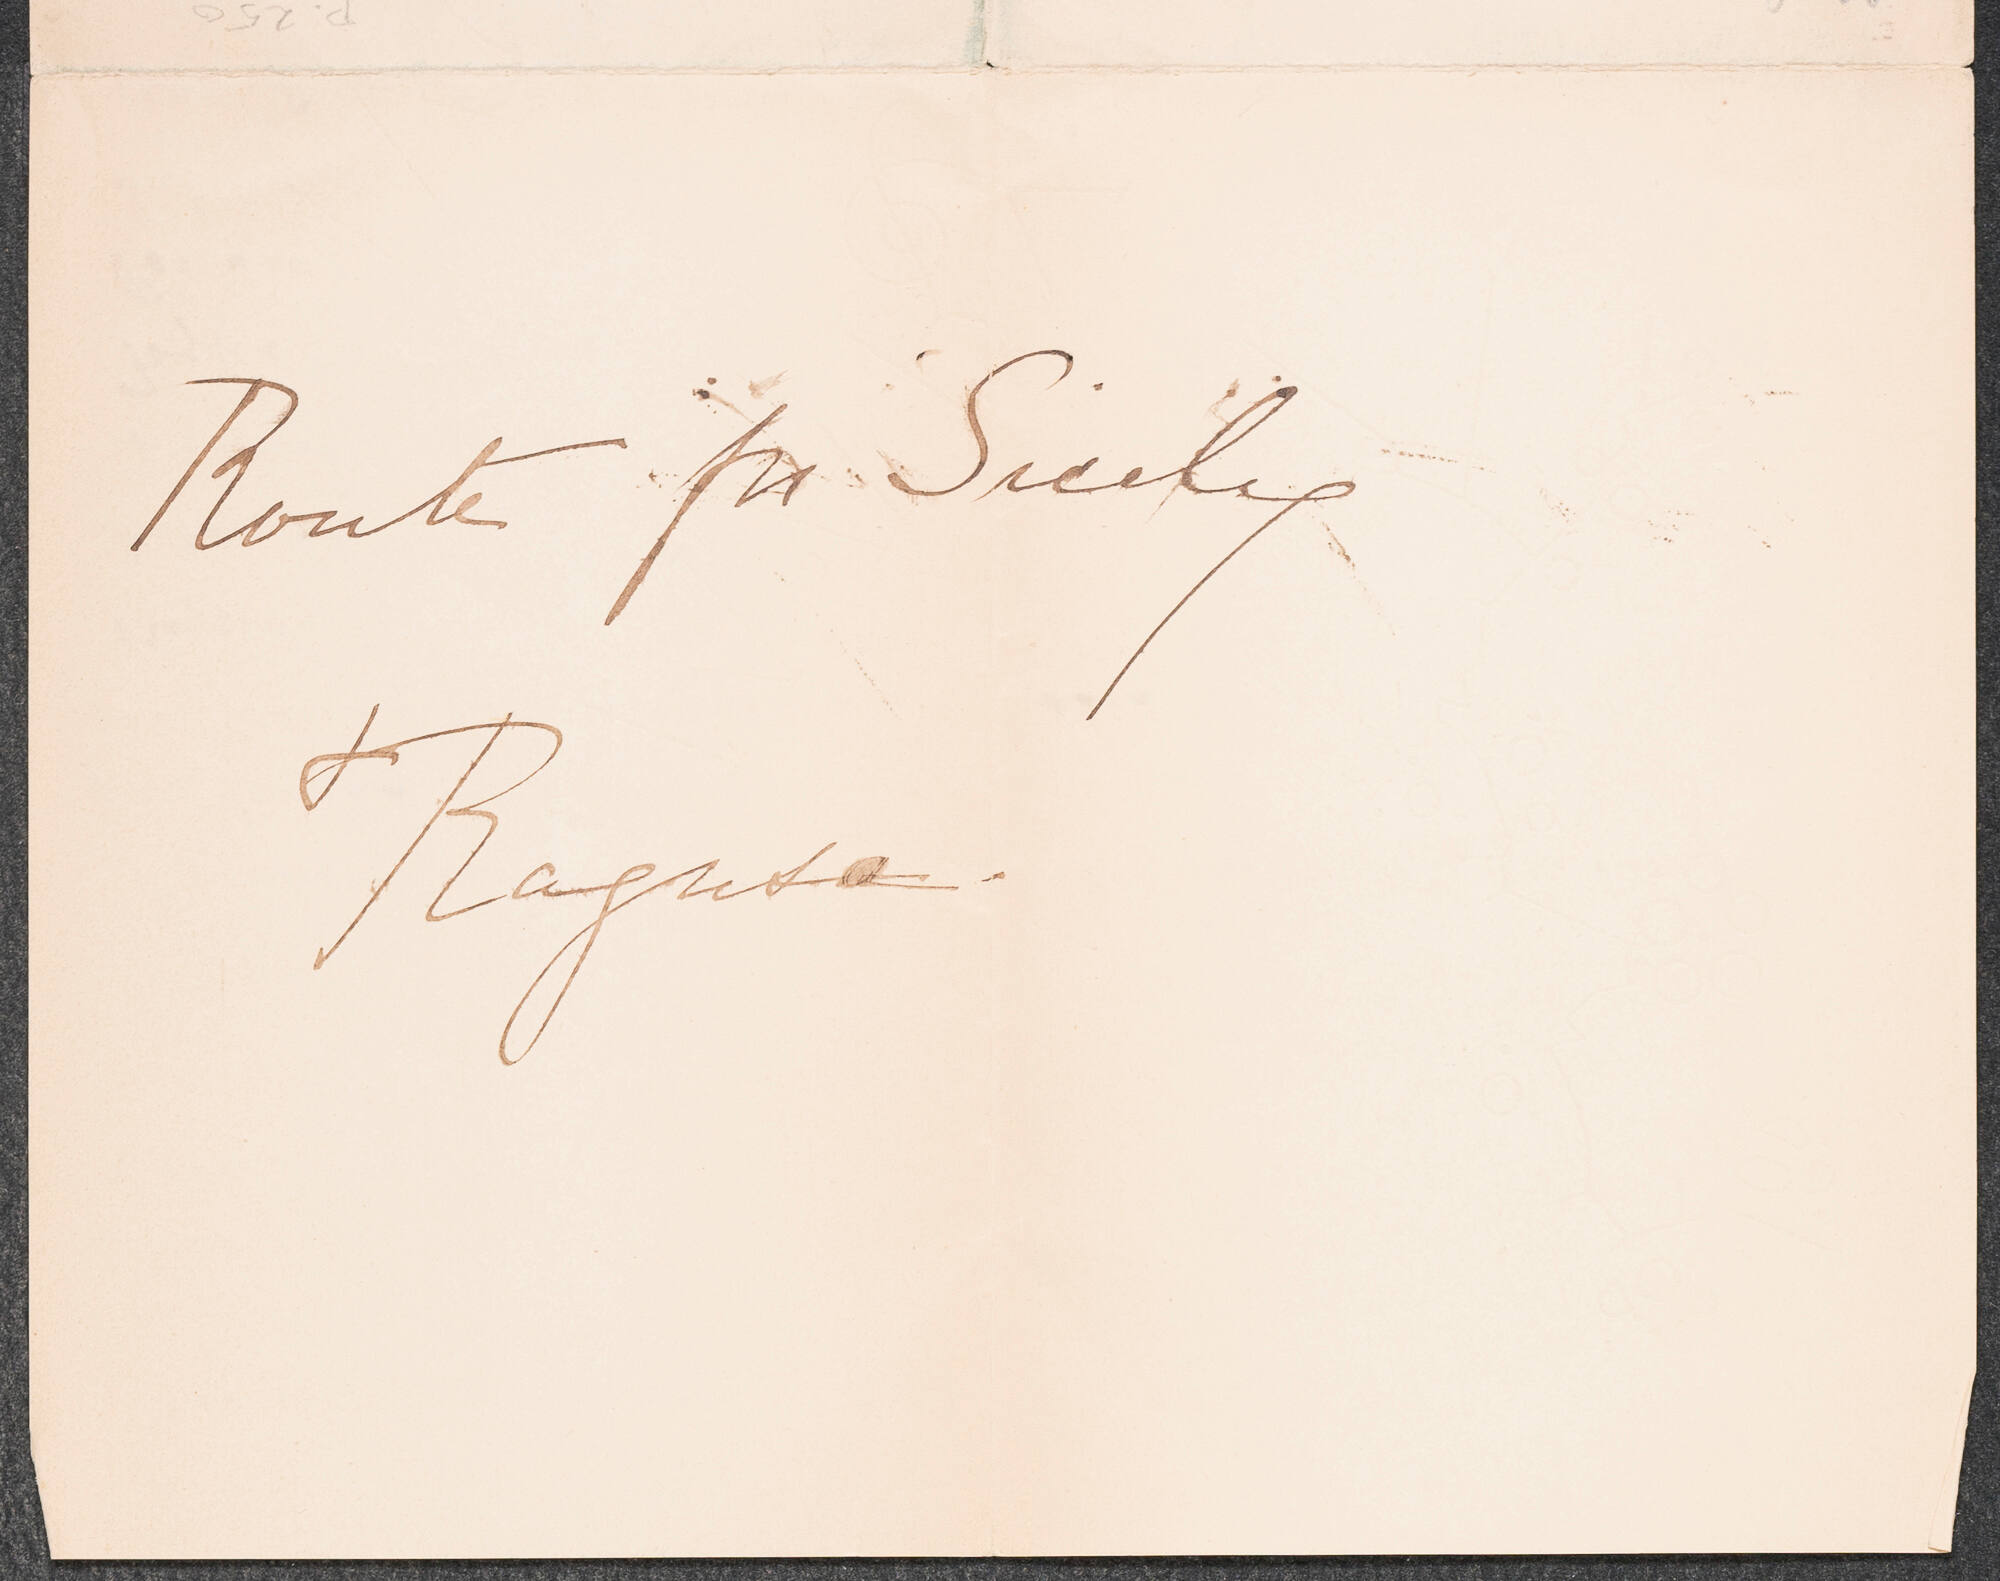 p. 250
Route for Sicily
& Ragusa.